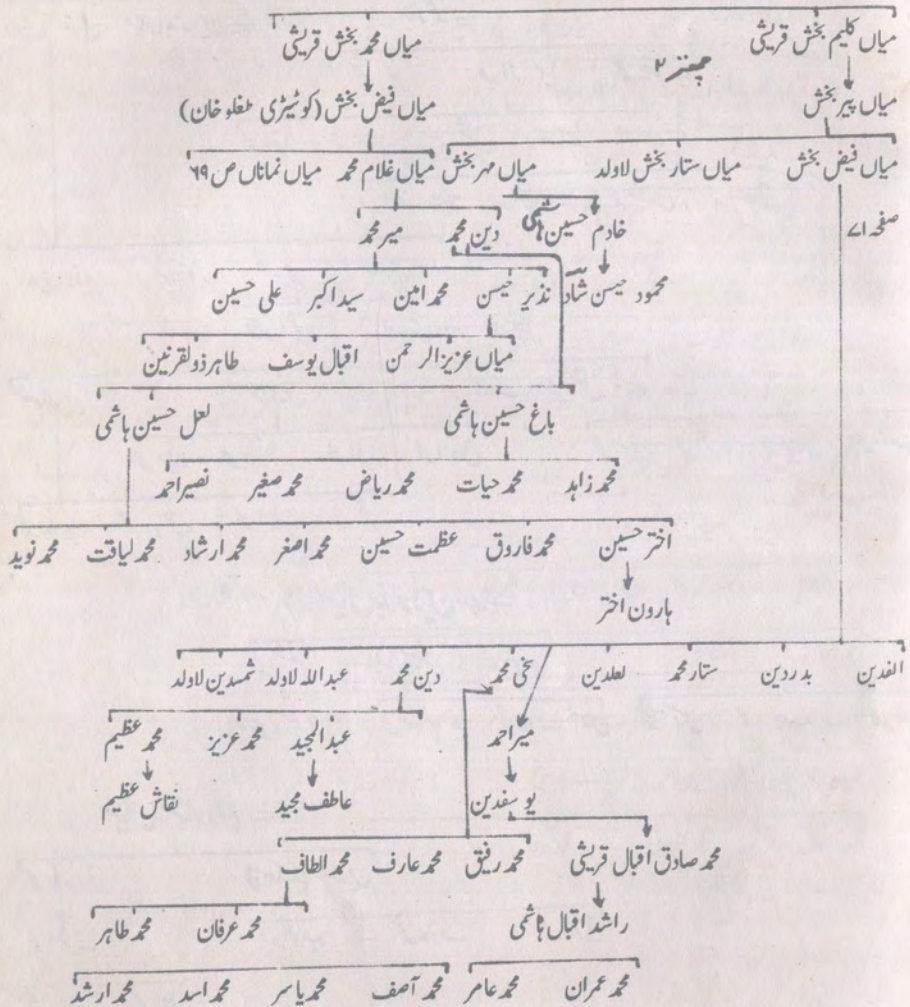 میاں کلیم بخش قریشی میاں محمد بخش قریشی
میاں پیر بخش میاں فیض بخش (کوٹیڑی مظفر خان)
میاں فیض بخش میاں ستار بخش لاولد میاں مہر بخش میاں غلام محمد میاں نماناں ص ۶۹
صفحہ ۷۱ خادم حسین ہاشمی دین محمد میر محمد
محمود حسن شاد نذیر حسن محمد امین سید اکبر علی حسین
میاں عزیز الرحمن اقبال یوسف طاہر ذولقرنین
باغ حسین ہاشمی لعل حسین ہاشمی
محمد زاہد محمد حیات محمد ریاض محمد صغیر نصیر احمد
اختر حسین محمد فاروق عظمت حسین محمد اصغر محمد ارشاد محمد لیاقت محمد نوید
ہارون اختر
الفدین بدردین ستار محمد لعلدین سخی محمد دین محمد عبداللہ لاولد شمسدین لاولد
میر احمد عبدالمجید محمد عزیز محمد عظیم
یوسفدین عاطف مجید نقاش عظیم
محمد صادق اقبال قریشی محمد رفیق محمد عارف محمد الطاف
راشد اقبال ہاشمی محمد عرفان محمد طاہر
محمد عمران محمد عامر محمد آصف محمد یاسر محمد اسد محمد ارشد